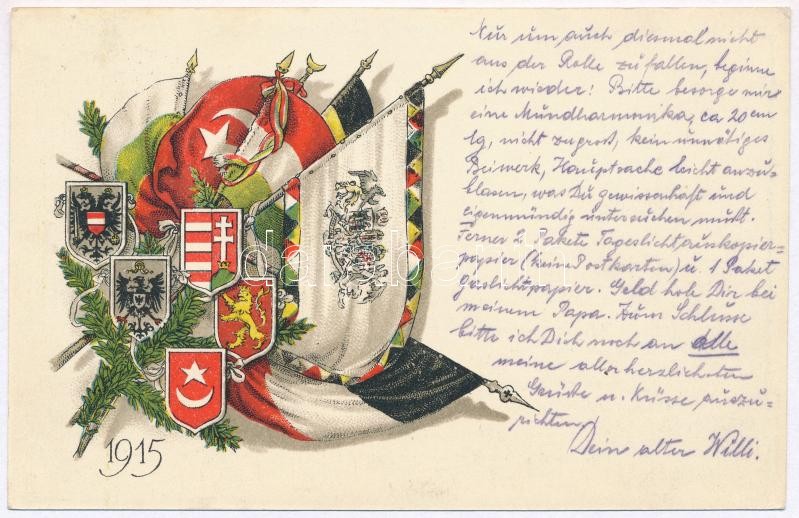 Nur um auch diesmal nicht
aus der Rolle zu fallen, beginne
ich wieder! Bitte besorge mir
eine Mundharmonika, ca 20 cm
lg, nicht zu groß, kein unnötiges
Beiwerk, Hauptsache leicht anzu-
blasen, was Du gewissenhaft und
eigenmündig untersuchen mußt.
Ferner 2 Pakete Tageslichtauskopier-
papier (kein Postkarten) u. 1 Paket
Gaslichtpapier. Geld hole Dir bei
meinem Papa. Zum Schlusse
bitte ich Dich noch an alle
meine allerherzlichsten
Grüße u. Küsse auszu-
richten
Dein alter Willi.
1915